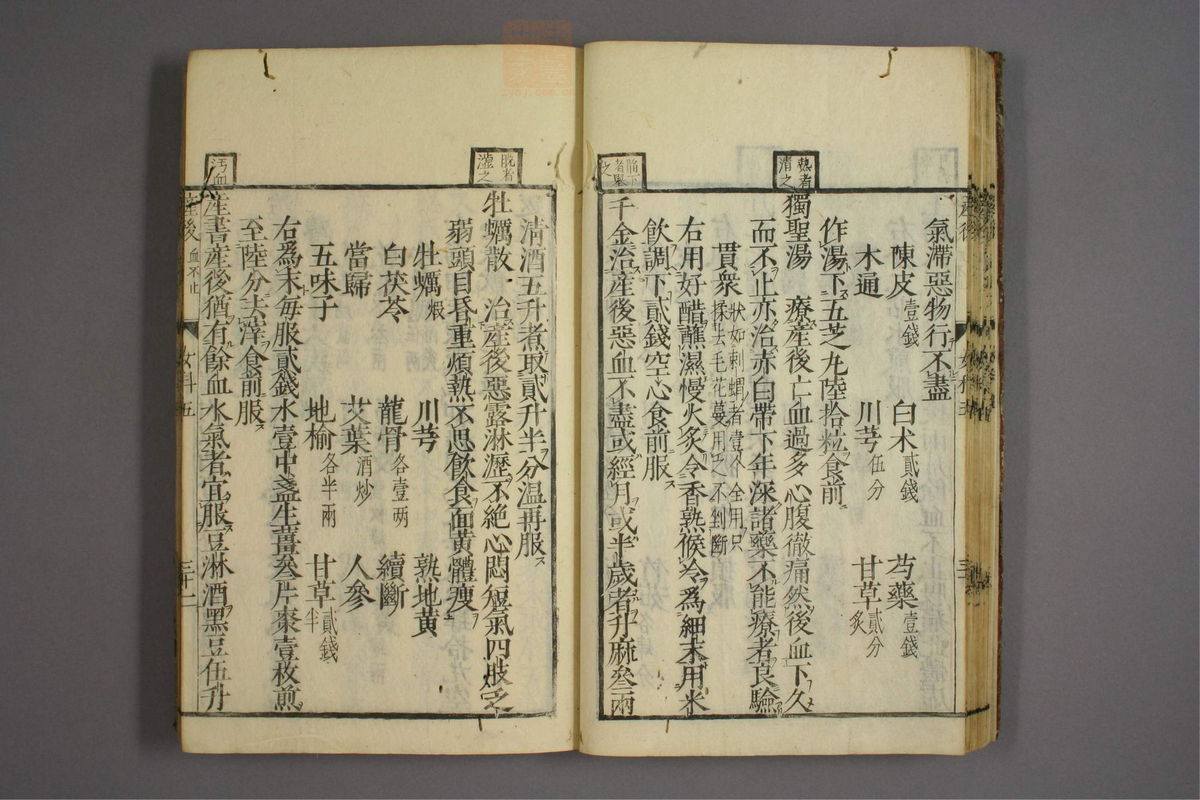 氣滯惡物行不盡
陳皮壹錢 白术貳錢 芍藥壹錢
木通 川芎伍分 甘草貳分炙
作湯下五芝丸陸拾粒食前
熱者清之
獨聖湯 療產後亡血過多心腹徹痛然後血下久
而不止亦治赤白帶下年深諸藥不能療者良驗
貫衆狀如刺蝟者壹个全用只揉去毛花萼用之不剉斷
右用好醋蘸濕慢火炙令香熟候冷爲細末用米
飲調下貳錢空心食前服
陷下者舉之
千金治產後惡血不盡或經月或半歲者升麻叁兩
清酒五升煮取貳升半分溫再服
脫者澁之
牡蠣散 治產後惡露淋瀝不絕心悶短氣四肢乏
弱頭目昏重煩熱不思飲食面黃體瘦
牡蠣煅 川芎 熟地黃
白茯苓 龍骨各壹兩 續斷
當歸 艾葉酒炒 人參
五味子 地榆各半兩 甘草貳錢半
右爲末每服貳錢水壹中盞生薑叁片棗壹枚煎
至陸分去滓食前服
汚血
產書產後猶有餘血水氣者宜服豆淋酒黑豆伍升
產後 血不止
女科五
三十二